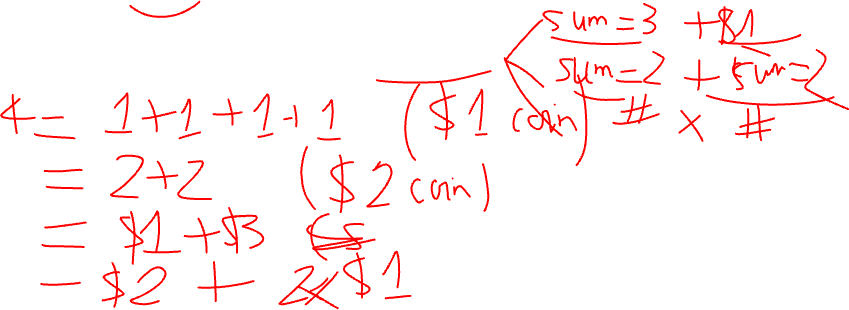 sum=3 +$1
sum=2 + sum=2
# × #
4= 1+1+1+1 ($1 coin)
= 2+2 ($2 coin)
= $1+$3
= $2 + 2x$1